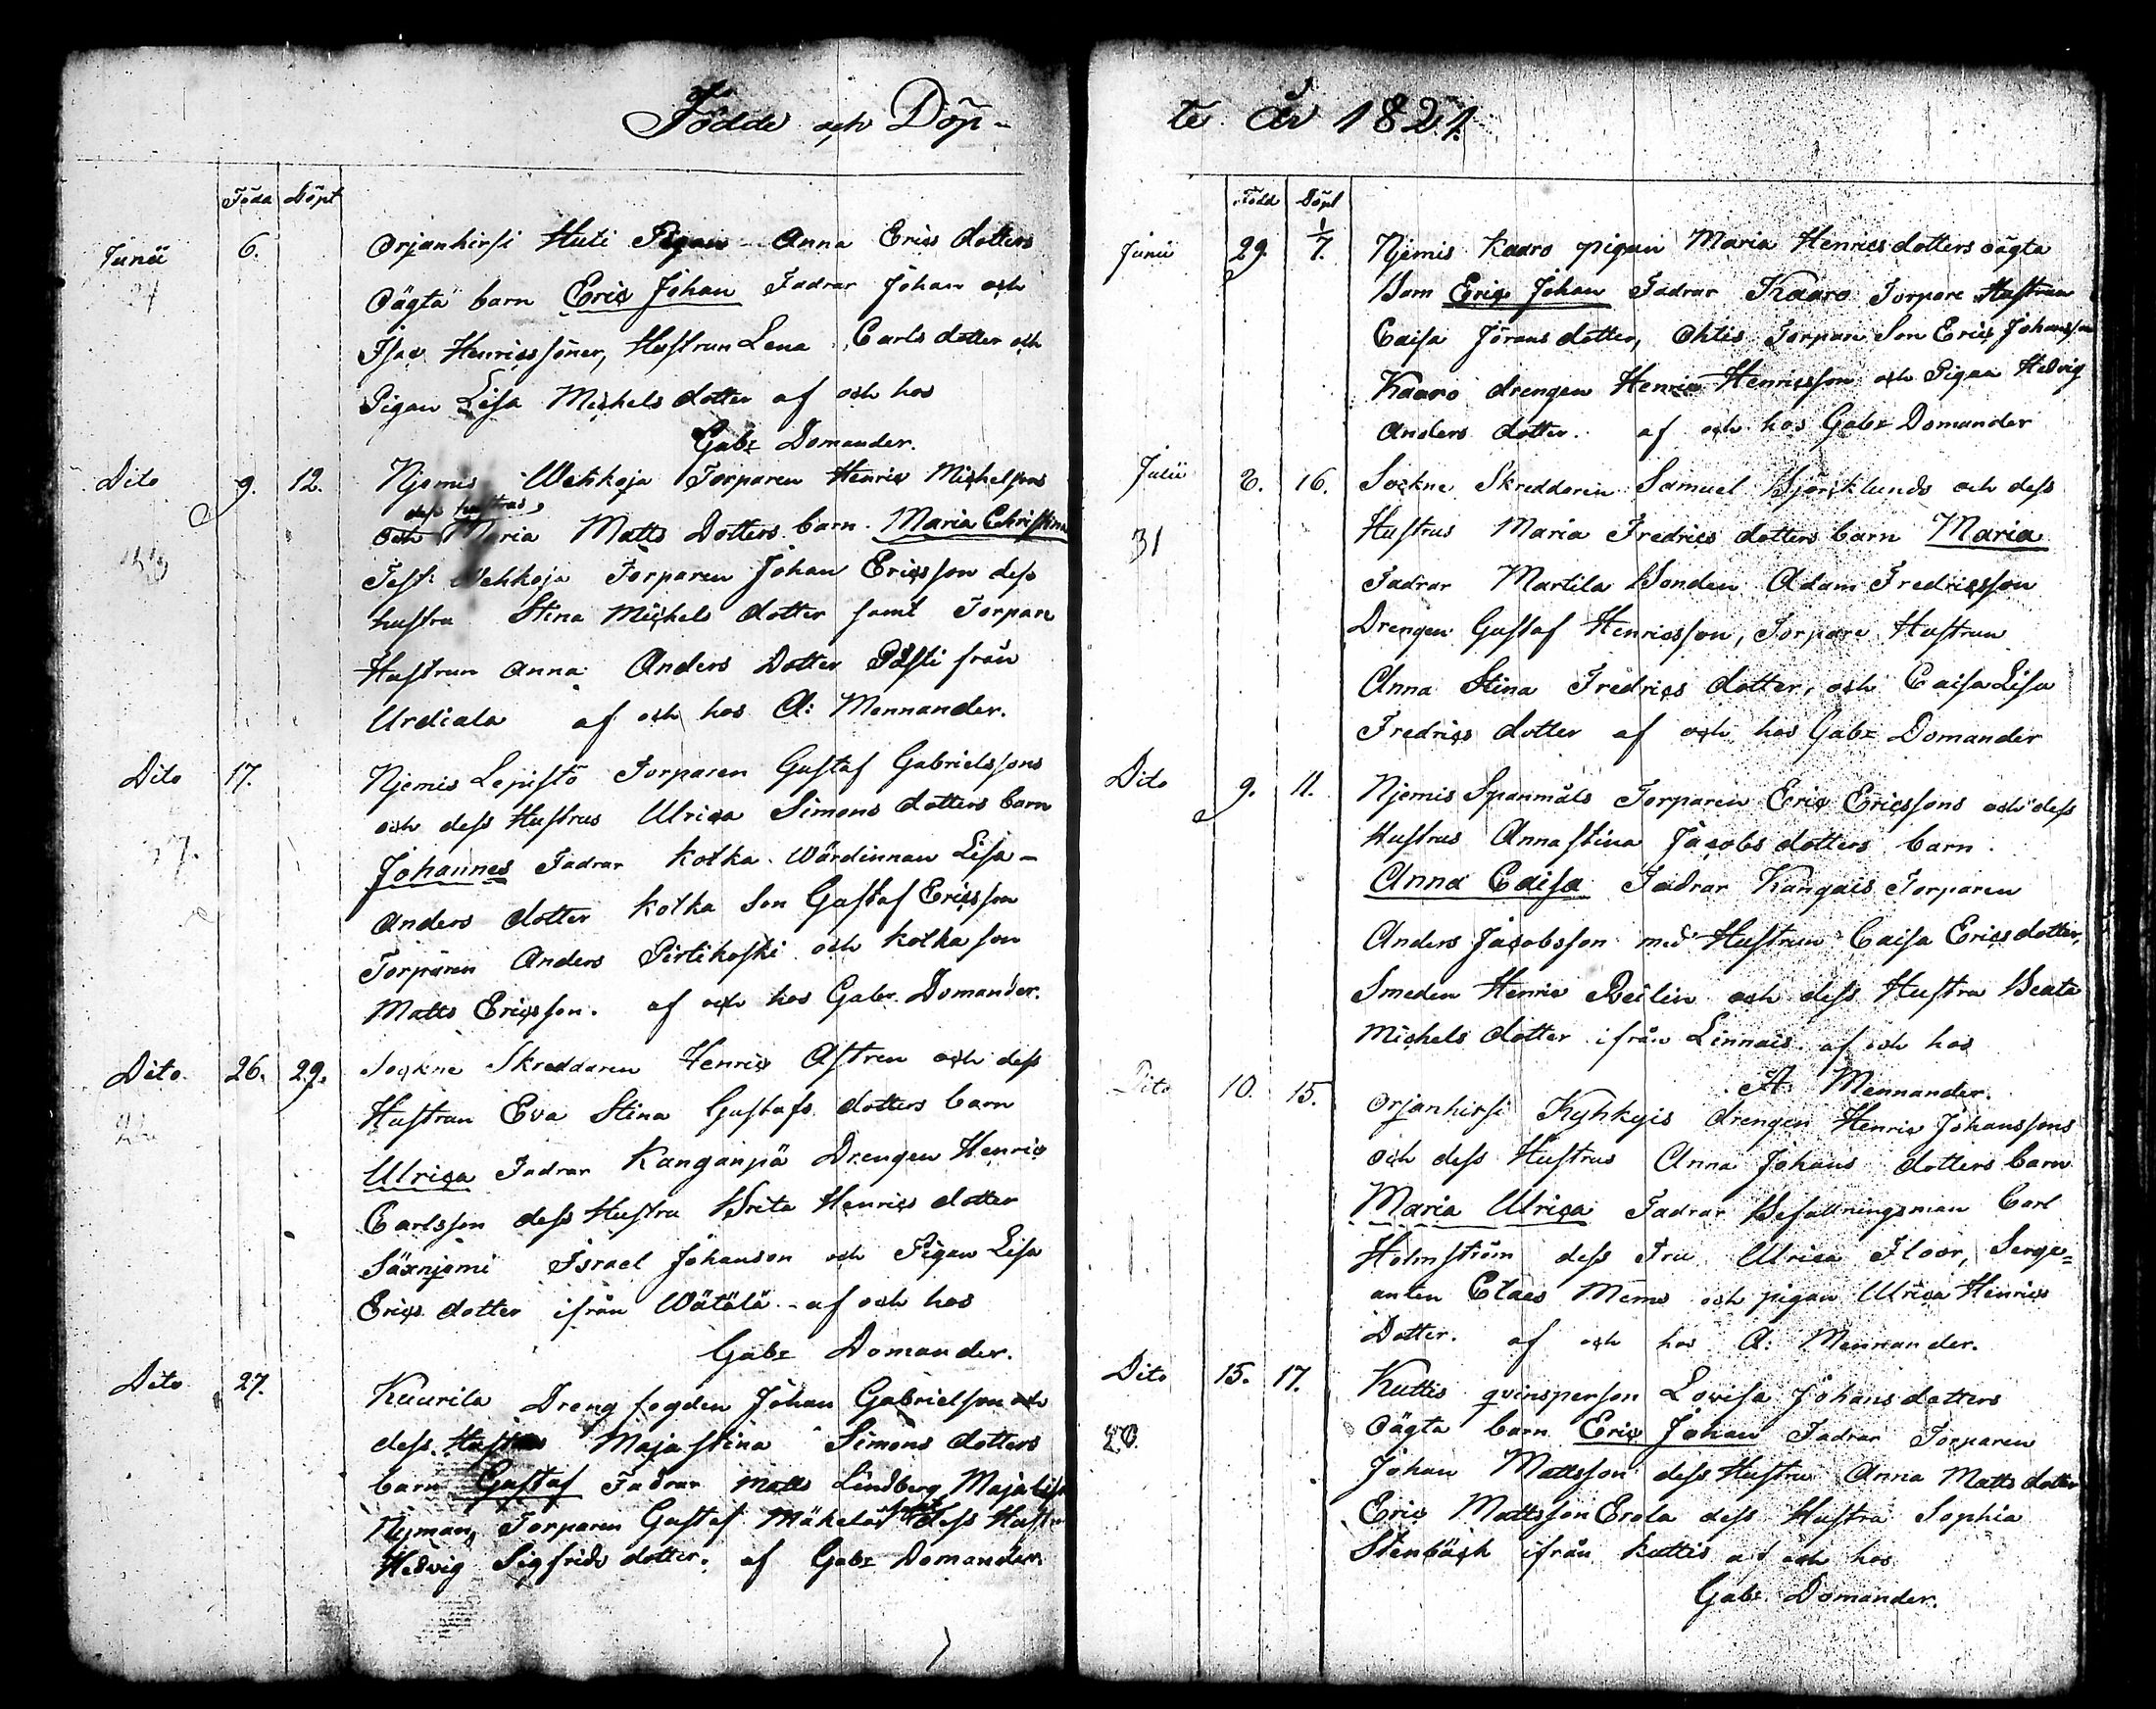 Födde och Döp-
Föda Döpt
Junii 6. Orjanhirsi Huti Pigan Anna Erics dotters
oägta barn Eric Johan Fadrar Johan och
Isac Henricssöner, Hustrun Lena Carls dotter och
Pigan Lisa Michels dotter af och hos
Gabr Domander.
Dito 9. 12. Njemis Wehkoja Torparen Henric Michelsons
dess hustrus
och Maria Matts Dotters barn Maria Christina
Test: Wehkoja Torparen Johan Ericsson dess
hustru Stina Michels dotter samt Torpare
Hustrun Anna Anders Dotter Påsti från
Urdiala af och hos A: Mennander.
Dito 17. Njemis Lepistö Torparen Gustaf Gabrielssons
och dess Hustrus Ulrica Simons dotters barn
Johannes Fadrar Kotka Wärdinnan Lisa-
Anders dotter Kotka Son Gustaf Ericsson
Torparen Anders Pirtikoski och Kotka son
Matts Ericsson. af och hos Gabr. Domander.
Dito 26. 29. Sockne Skreddaren Henric Astren och dess
Hustrun Eva Stina Gustafs dotters barn
Ulrica Fadrar Kanganpä Drengen Henric
Carlsson dess Hustru Brita Henrics dotter
Säxnjemi Israel Johanson och Pigan Lisa
Erics dotter ifrån Wätälä af och hos
Gabr Domander.
Dito 27. Kuurila Dreng fogden Johan Gabrielson och
dess Hustrus Maja Stina Simons dotters
barn Gustaf Fadrar Matts Lindberg Maja Lisa
Nyman, Torparen Gustaf Mäkelä dess Hustru
Hedvig Sigfrids dotter. af Gabr Domander
te År 1821.
Född Döpt
Junii 29. 1/7. Njemis Kaaro pigan Maria Henrics dotters oägta
Barn Eric Johan Fadrar Kaaro Torpare Hustrun
Caisa Jörans dotter, Ohtis Torpare Son Eric Johansson
Kaaro drengen Henric Henricsson och Pigan Hedvig
Anders dotter. af och hos Gabr Domander
Julii 2. 16. Sockne Skreddaren Samuel Björklunds och dess
31 Hustrus Maria Fredrics dotters barn Maria
Fadrar Martila Bonden Adam Fredricsson
Drengen Gustaf Henricsson, Torpare Hustrun
Anna Stina Fredrics dotter, och Caisa Lisa
Fredrics dotter af och hos Gabr Domander
Dito 9. 11. Njemis Spanmåls Torparen Eric Ericssons och dess
Hustrus Anna Stina Jacobs dotters barn
Anna Caisa Fadrar Kangais Torparen
Anders Jacobsson med Hustrun Caisa Ericsdotter,
Smeden Henric Beilin och dess Hustru Beata
Michels dotter ifrån Linnais af och hos
A: Mennander.
Dito 10. 15. Orjanhirsi Kyhkyis drengen Henric Johanssons
och dess Hustrus Anna Johans dotters barn
Maria Ulrica Fadrar Befallningsman Carl
Holmström dess Fru Ulrica Floor, Serge=
anten Claes Memo och pigan Ulrica Henrics
Dotter. af och hos A: Mennander.
Dito 15. 17. Kuttis qvinsperson Lovisa Johans dotters
20. Oägta barn Eric Johan Fadrar Torparen
Johan Mattsson dess Hustru Anna Matts dotter
Eric Mattsson Erola dess Hustru Sophia
Stenbäck ifrån Kuttis af och hos
Gabr Domander.